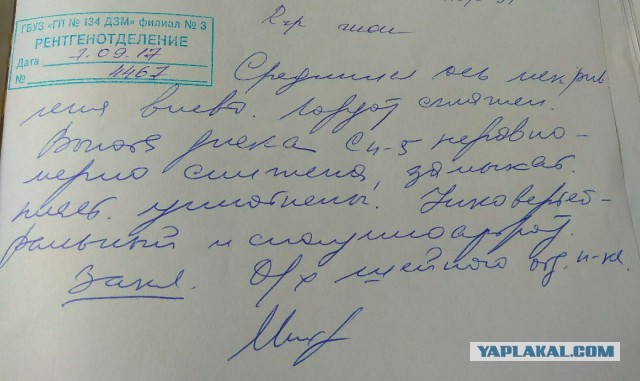 ГБУЗ «ГП № 134 ДЗМ» филиал № 3
РЕНТГЕНОТДЕЛЕНИЕ
Дата 7.09.17
№ 4467
R-гр шои
Срединная ось искрив
лена влево. Лордоз сглажен.
Высота диска С4-5 неравно-
мерно снижена, замыкат.
пласт. уплотнены. Унковертеб-
ральный и спондилоартроз.
Закл. О/х шейного отд. п-ка.
YAPLAKAL.COM